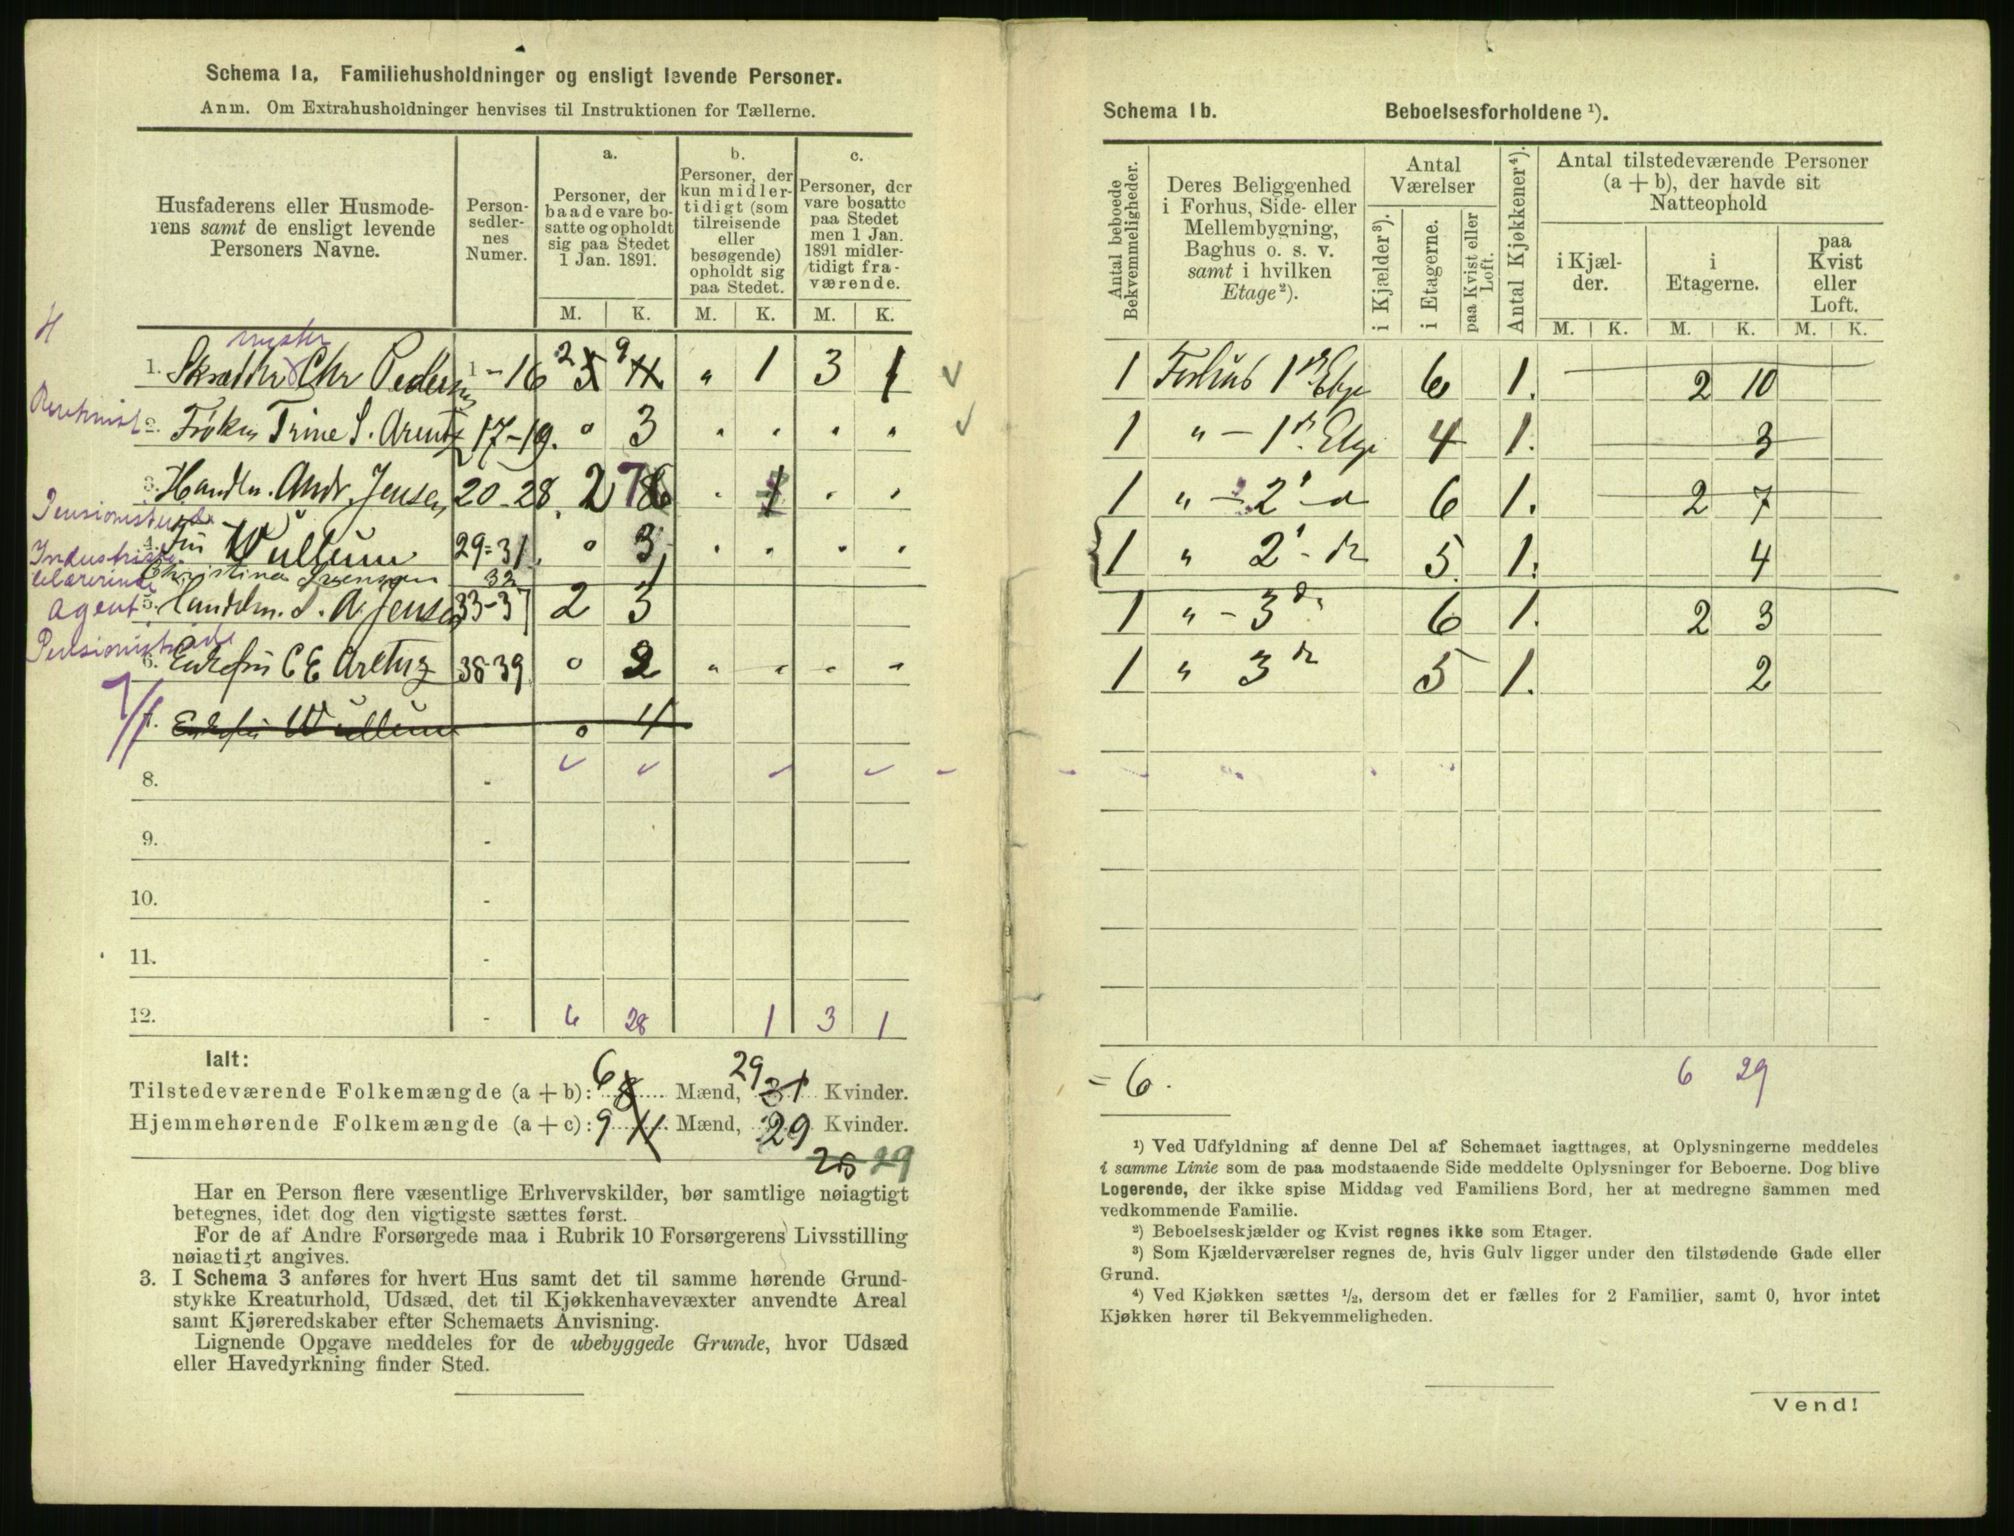 Schema 1a, Familiehusholdninger og ensligt levende Personer.
Anm. Om Extrahusholdninger henvises til Instruktionen for Tællerne.
Husfaderens eller Husmoderens samt de ensligt levende Personers Navne.
Personsedlernes Numer.
a. Personer, der baade vare bosatte og opholdt sig paa Stedet 1 Jan. 1891.
b. Personer, der kun midlertidigt (som tilreisende eller besøgende) opholdt sig paa Stedet.
c. Personer, der vare bosatte paa Stedet men 1 Jan. 1891 midlertidigt fraværende.
M. K. M. K. M. K.
H
myster
1. Skrædder Chr Pedersen 1-16 2 5 9 11 " 1 3 1
2. Frøken Trine S. Arentz 17-19. o 3 " " " "
3. Handlm. Andr. Jensen 20-28. 2 7 6 . 1 . .
Pensionistinde
4. Fru Wullum 29-31. o 3 . . . .
Industri
Christina Svensson 32
Agent 5. Handelsm. A. Jensen 33-37 2 3
Pensionistinde
6. Enkefru C E Arentz 38-39 o 2 " " " "
7. Enkefru Wullum o 4
8. -
9. -
10. -
11. -
12. - 6 28 1 3 1
Ialt:
Tilstedeværende Folkemængde (a + b): 6 8 Mænd, 29 31 Kvinder.
Hjemmehørende Folkemængde (a + c): 9 11 Mænd, 29 Kvinder.
28 29
Har en Person flere væsentlige Erhvervskilder, bør samtlige nøiagtigt
betegnes, idet dog den vigtigste sættes først.
For de af Andre Forsørgede maa i Rubrik 10 Forsørgerens Livsstilling
nøiagtigt angives.
3. I Schema 3 anføres for hvert Hus samt det til samme hørende Grund-
stykke Kreaturhold, Udsæd, det til Kjøkkenhavevæxter anvendte Areal
samt Kjøreredskaber efter Schemaets Anvisning.
Lignende Opgave meddeles for de ubebyggede Grunde, hvor Udsæd
eller Havedyrkning finder Sted.
Schema 1b. Beboelsesforholdene ¹).
Antal beboede Bekvemmeligheder.
Deres Beliggenhed i Forhus, Side- eller Mellembygning, Baghus o. s. v. samt i hvilken Etage²).
Antal Værelser
i Kjælder³).
i Etagerne.
paa Kvist eller Loft.
Antal Kjøkkener⁴).
Antal tilstedeværende Personer (a + b), der havde sit Natteophold
i Kjælder.
i Etagerne.
paa Kvist eller Loft.
M. K. M. K. M. K.
1 Forhus 1ste Etge 6 1. 2 10
1 " - 1st Etge 4 1. 3
1 " - 2' d 6 1. 2 7
1 " 2' - de 5 1. 4
1 " - 3de 6 1. 2 3
1 " 3de 5 1. 2
= 6. 6 29
¹) Ved Udfyldning af denne Del af Schemaet iagttages, at Oplysningerne meddeles
i samme Linie som de paa modstaaende Side meddelte Oplysninger for Beboerne. Dog blive
Logerende, der ikke spise Middag ved Familiens Bord, her at medregne sammen med
vedkommende Familie.
²) Beboelseskjælder og Kvist regnes ikke som Etager.
³) Som Kjælderværelser regnes de, hvis Gulv ligger under den tilstødende Gade eller
Grund.
⁴) Ved Kjøkken sættes ½, dersom det er fælles for 2 Familier, samt 0, hvor intet
Kjøkken hører til Bekvemmeligheden.
Vend!